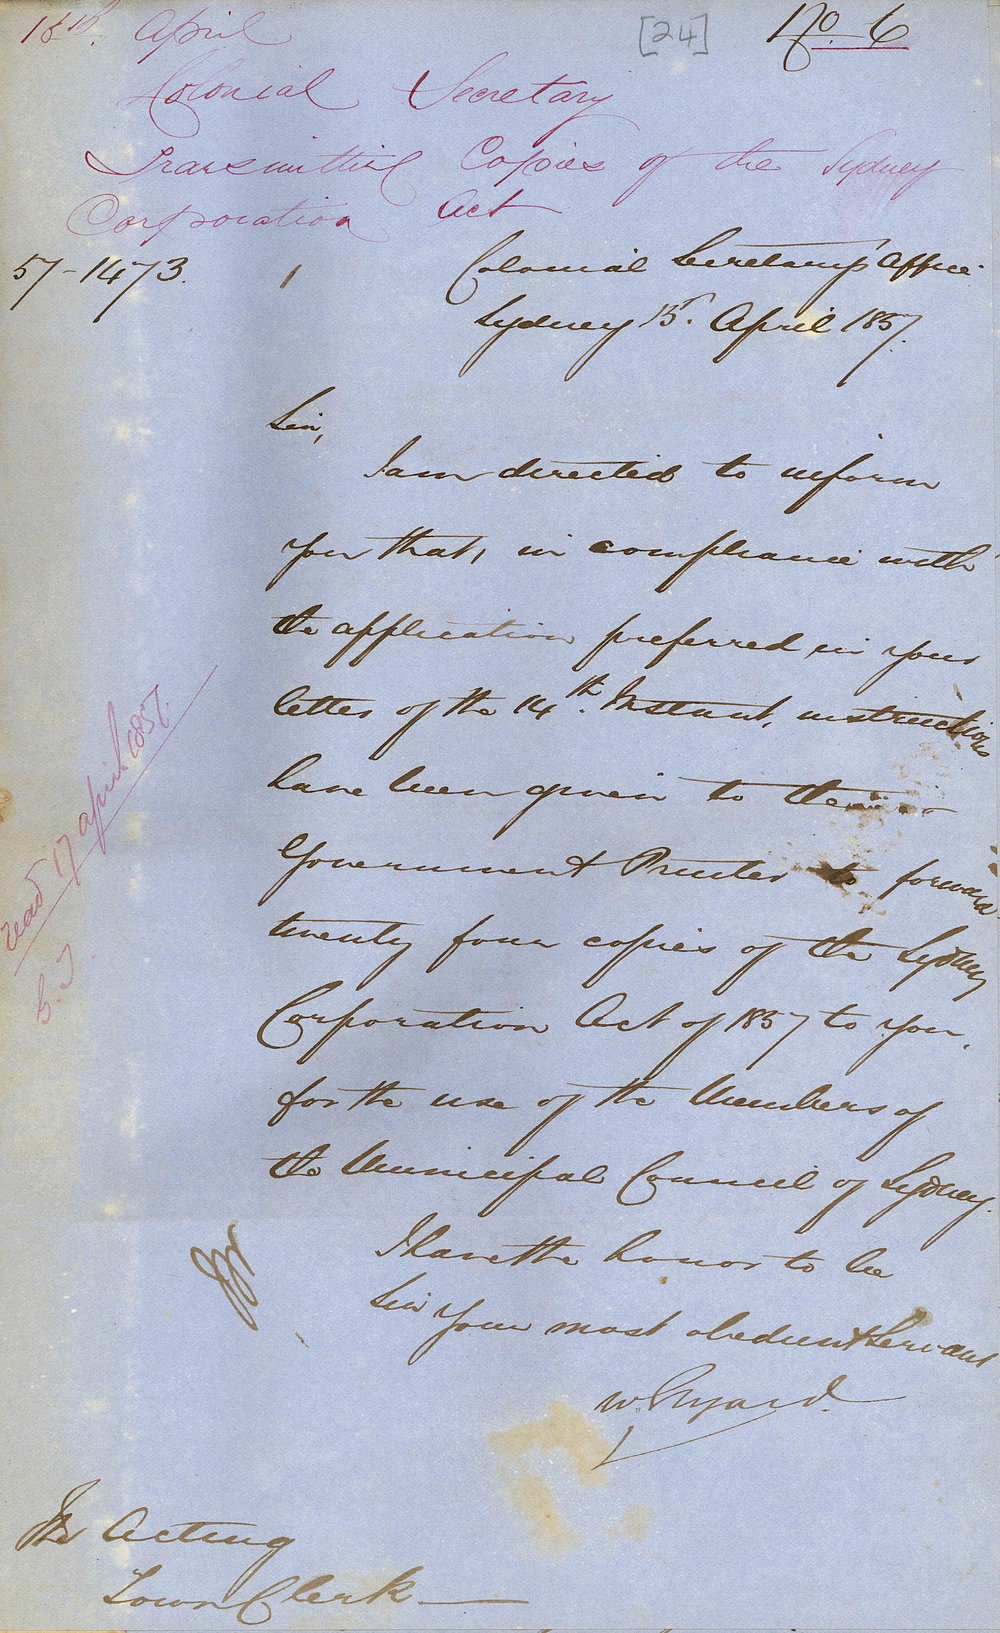 15th. April
[24]
No. 6
Colonial Secretary
Transmitting Copies of the Sydney
Corporation Act
57-1473.
Colonial Secretary's Office
Sydney 15th. April 1857.
Sir,
I am directed to inform
you that, in compliance with
the application preferred in your
letter of the 14th. Instant, instructions
have been given to the
Government Printer to forward
twenty four copies of the Sydney
Corporation Act of 1857 to you,
for the use of the Members of
the Municipal Council of Sydney.
I have the honor to be
Sir
Your most obedient Servant
W Elyard.
read 17 April 1857.
The Acting
Town Clerk